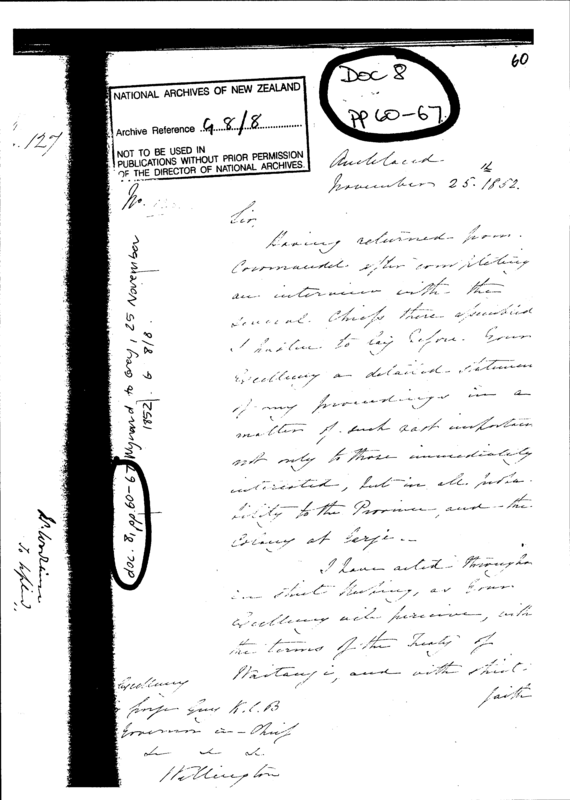 60
DOC 8
pp 60-67
NATIONAL ARCHIVES OF NEW ZEALAND
Archive Reference G 8/8
NOT TO BE USED IN
PUBLICATIONS WITHOUT PRIOR PERMISSION
OF THE DIRECTOR OF NATIONAL ARCHIVES.
127
No.
Auckland
November 25th 1852.
Sir,
Having returned from
Coromandel after completing
an interview with the
several Chiefs there assembled
I hasten to lay before Your
Excellency a detailed Statemen
of my proceedings in a
matter of such vast importan
not only to those immediately
interested, but in all proba-
bility to the Province, and the
Colony at large.
I have acted througho
in strict keeping, as Your
Excellency will perceive, with
the terms of the Treaty of
Waitangi, and with strict
faith
Excellency
George Grey K.C.B
Governor in Chief
&c &c &c
Wellington
Doc. 8, pp 60-67
Wynyard to Grey, 25 November
1852, G 8/8